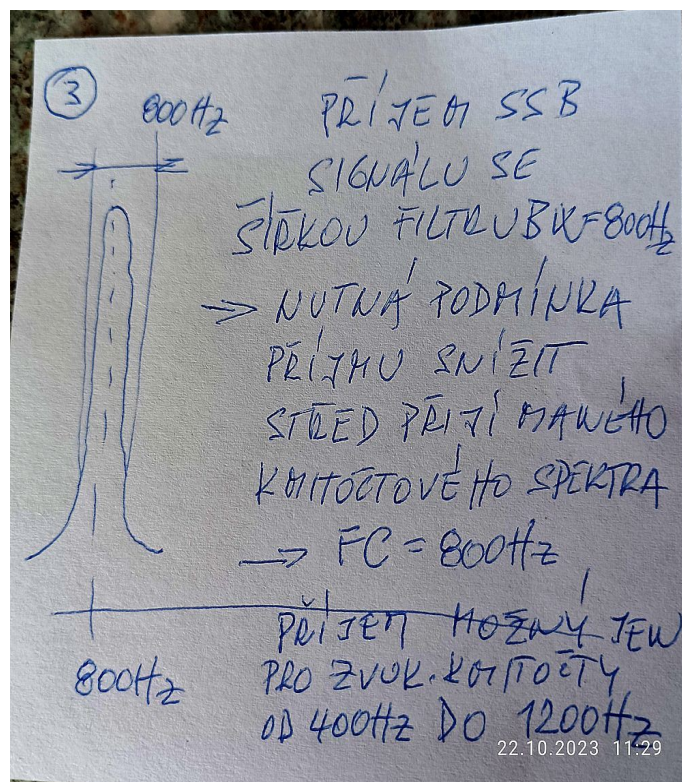 3
800Hz
PŘÍJEM SSB
SIGNÁLU SE
ŠÍŘKOU FILTRU BW=800Hz
→ NUTNÁ PODMÍNKA
PŘÍJMU SNÍŽIT
STŘED PŘIJÍMANÉHO
KMITOČTOVÉHO SPEKTRA
→ FC = 800Hz
PŘÍJEM MOŽNÝ JEN
PRO ZVUK. KMITOČTY
OD 400Hz DO 1200Hz
800Hz
22.10.2023 11:29